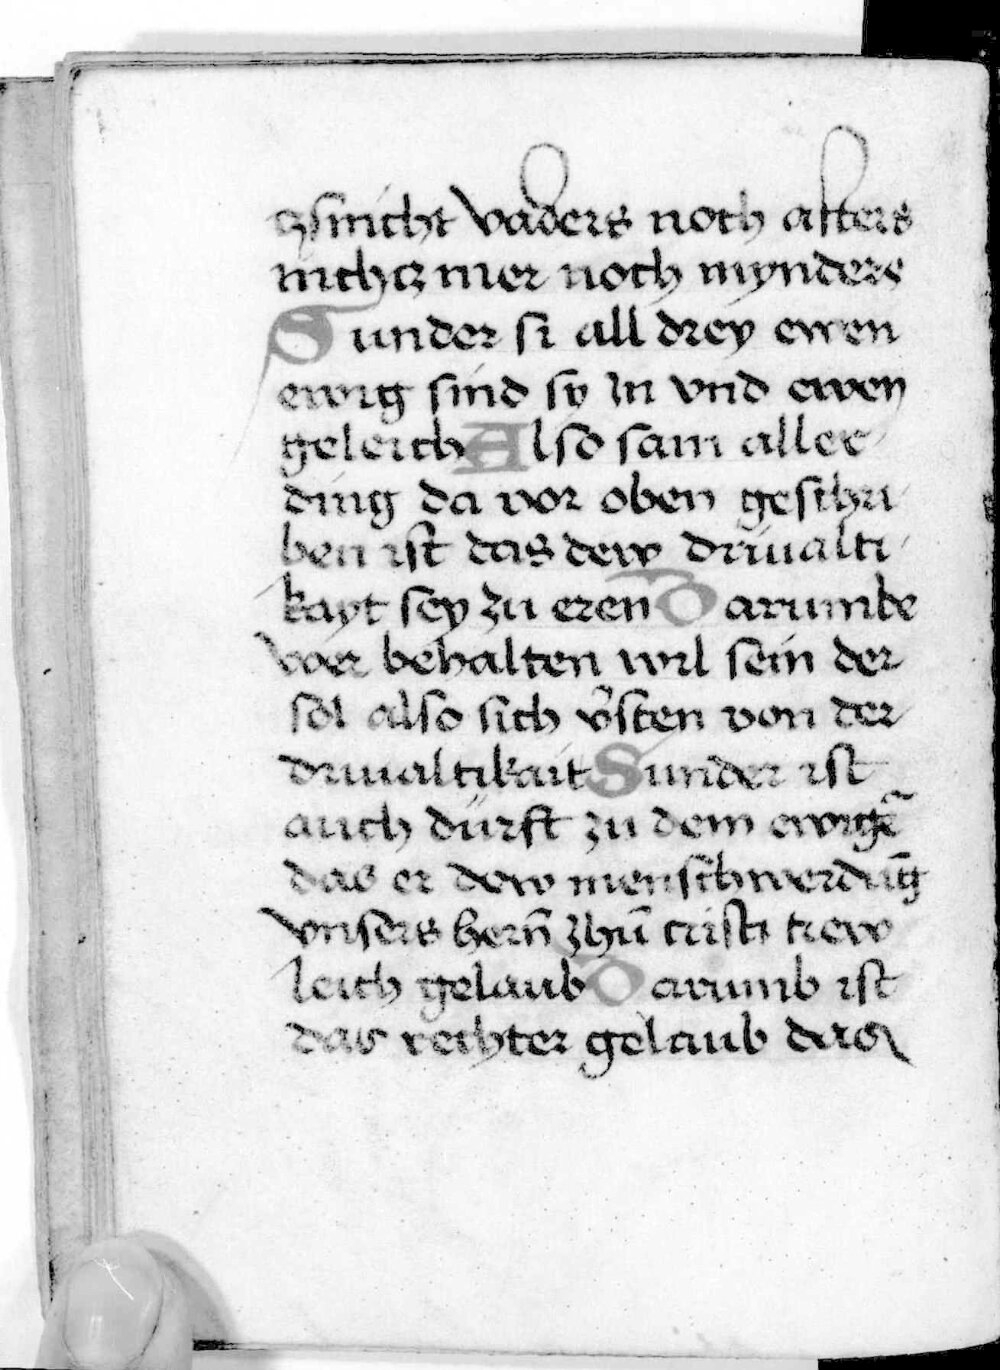 czsnicht vaders noch afters
nichcz mer noch mynders
Sunder si all drey ewen
ewig sind sy In vnd ewen
geleich Also sam aller
ding da vor oben geschri
ben ist das dew driualti
kayt sey zu eren Darumbe
wer behalten wil sein der
sol also sich v̉sten von der
driualtikait Sunder ist
auch dürft zu dem ewigē
das er dew menschwerdūg
vnsers hern̄ Jhū cristi trew
leich gelaub Darumb ist
das rechter gelaub das